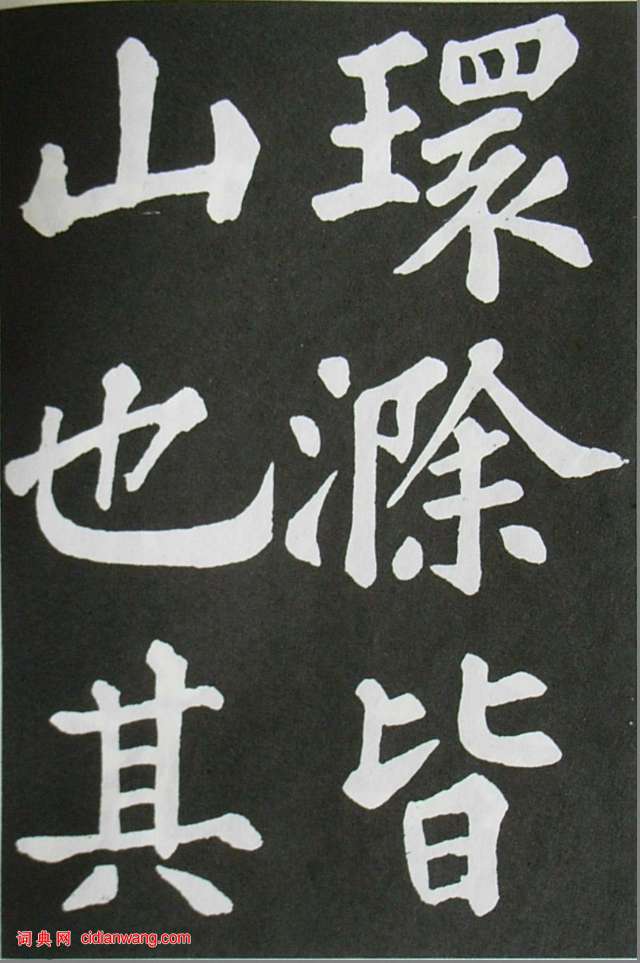 環滁皆
山也其
词典网 cidianwang.com